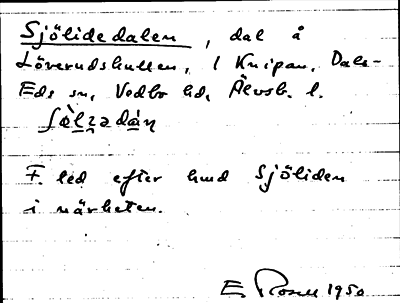 Sjölidedalen, dal å
Löverudskullen, 1 Knipan, Dals-
Eds sn, Vedbo hd, Älvsb. l.
F. led efter hmd Sjöliden
i närheten.
E. 1950